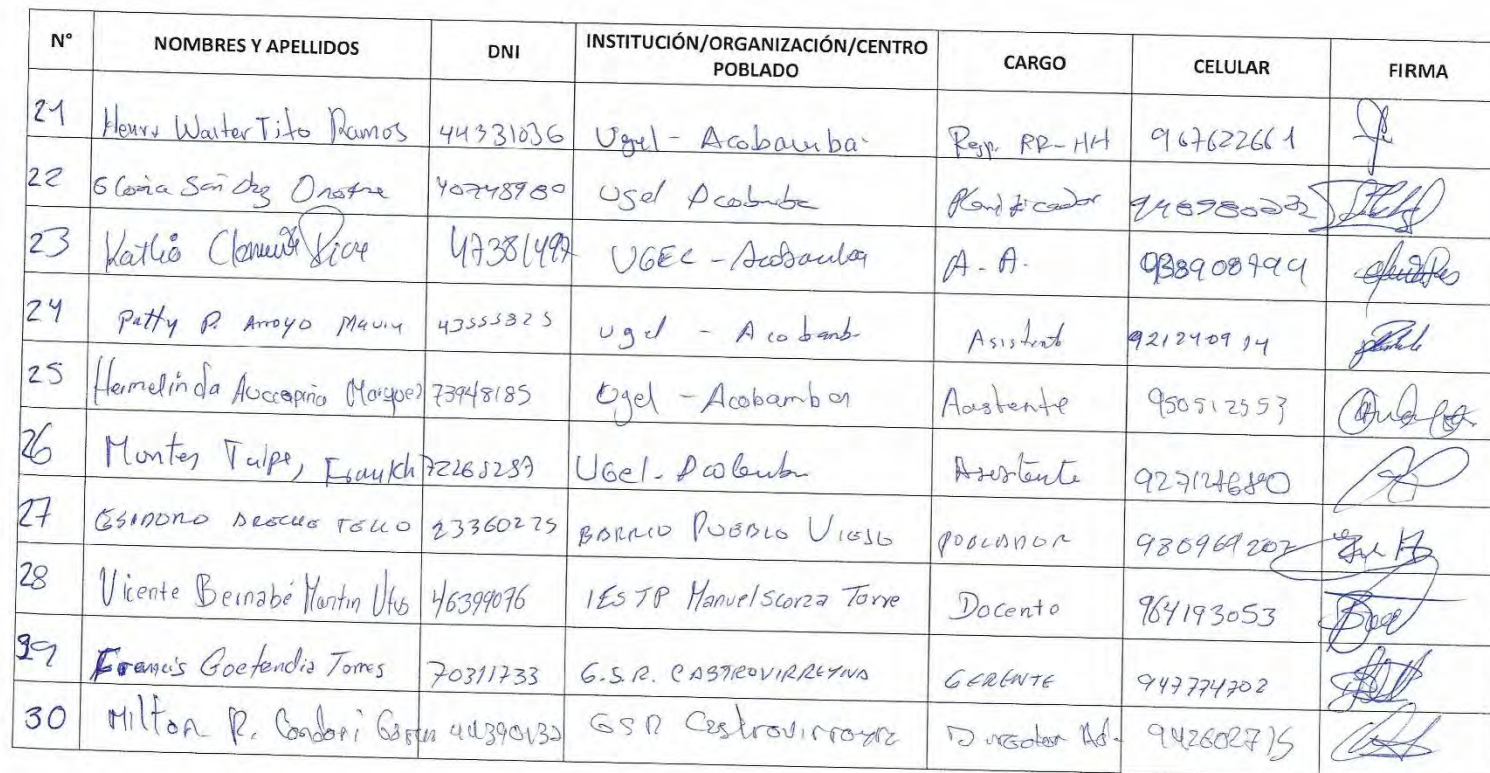 N° NOMBRES Y APELLIDOS DNI INSTITUCIÓN/ORGANIZACIÓN/CENTRO POBLADO CARGO CELULAR FIRMA
21 Henry Walter Tito Ramos 44331036 Ugel - Acobamba Resp. RR-HH 967622661
22 40748980 Ugel Acobamba Planificador
23 Katlia 47381497 UGEL - Acobamba A.A. 938908794
24 Patty P. Arroyo 43555825 Ugel - Acobamb Asistente 921240914
25 Hermelinda Auccapiña Marquez 73948185 Ugel - Acobamba Asistente 950512553
26 Montes Taipe, 72265287 UGel - Asistente
27 TELLO 23360225 BARRIO PUEBLO VIEJO POBLADOR 980969202
28 Vicente Bernabé Martin 46399076 IESTP Manuel Scorza Torre Docente 964193053
29 Francis Goetendia Torres 70311733 G.S.R. CASTROVIRREYNA GERENTE 947774702
30 Milton R. Condori 44390132 GSR Castrovirreyna Director Ad. 942602715